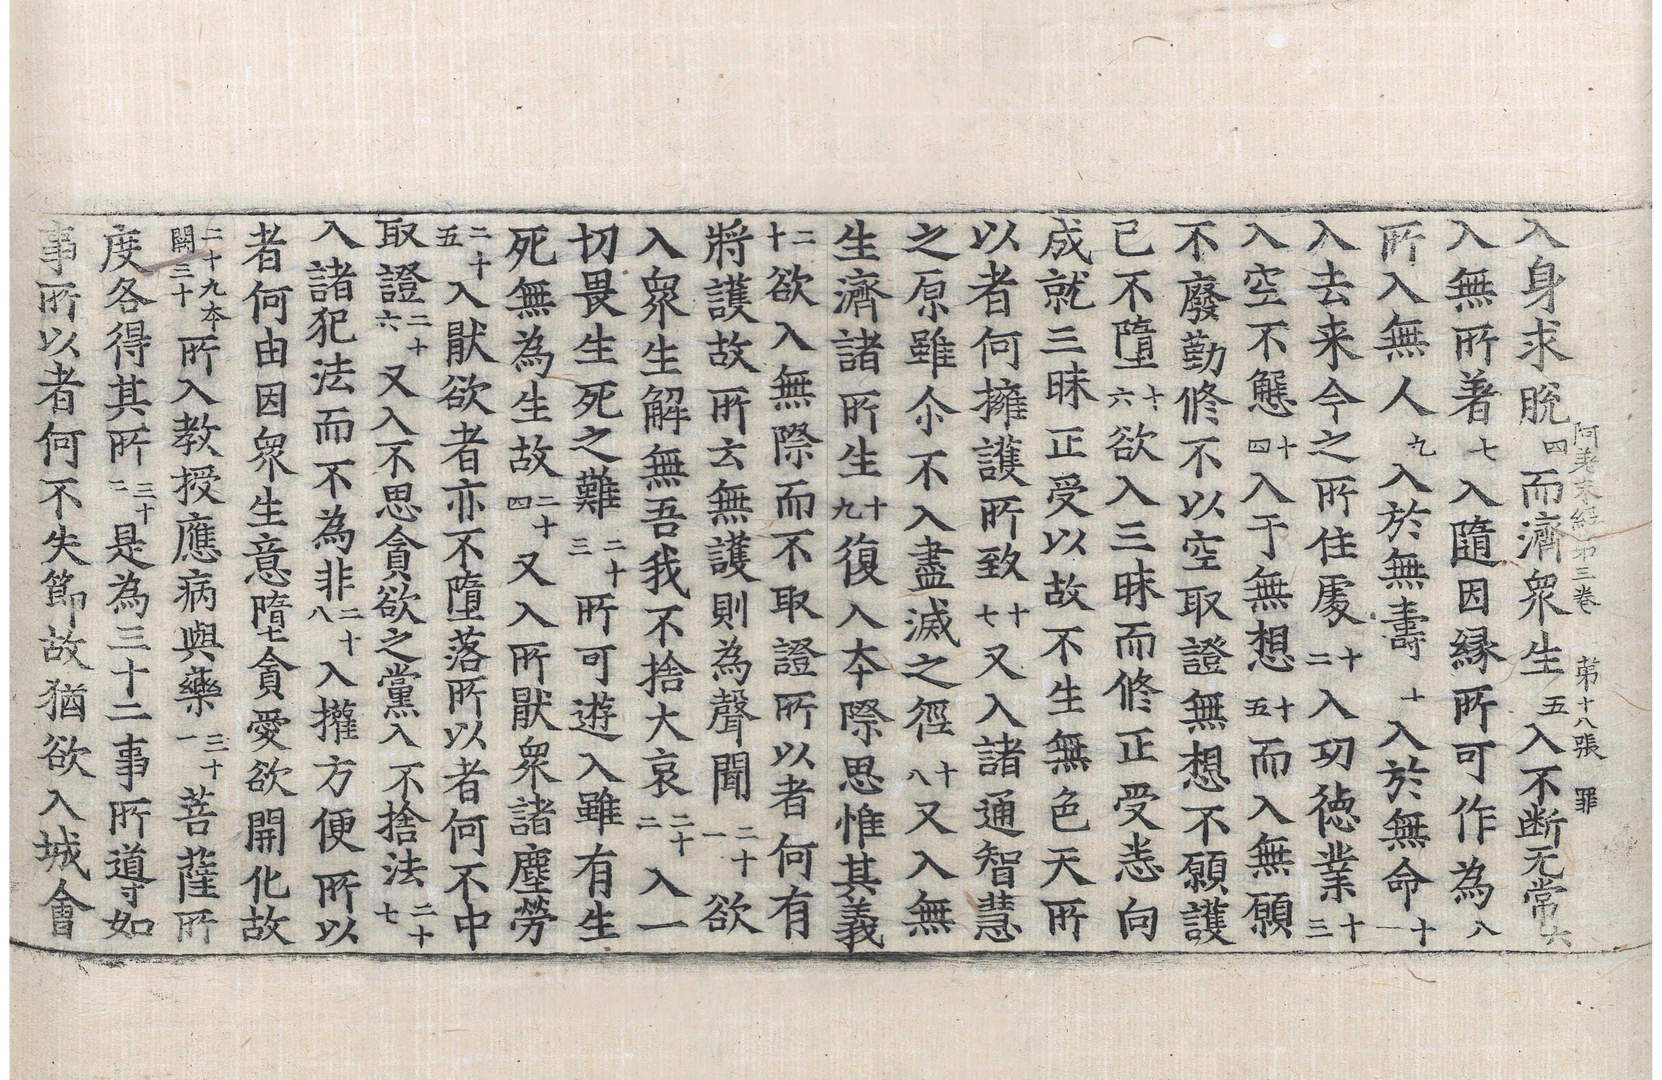 阿差末經第三卷　第十八張　罪
入身求脫四而濟衆生五入不断无常六
入無所著七入隨因緣所可作為八
所入無人九入於無壽十入於無命十一
入去来今之所住處十二入功德業十三
入空不態十四入于無想十五而入無願
不廢勤修不以空取證無想不願護
己不墮十六欲入三昧而修正受恚向
成就三昧正受以故不生無色天所
以者何擁護所致十七又入諸通智慧
之原雖尒不入盡滅之徑十八又入無
生濟諸所生十九復入本際思惟其義
二十欲入無際而不取證所以者何有
將護故所云無護則為聲聞二十一欲
入衆生解無吾我不捨大哀二十二入一
切畏生死之難二十三所可遊入雖有生
死無為生故二十四又入所猒衆諸塵勞
二十五入猒欲者亦不墮落所以者何不中
取證二十六又入不思貪欲之黨入不捨法二十七
入諸犯法而不為非二十八入攉方便所以
者何由因衆生意墮貪愛欲開化故
二十九本闕三十所入教授應病與藥三十一菩薩所
度各得其所三十二是為三十二事所導如
事所以者何不失節故猶欲入城會